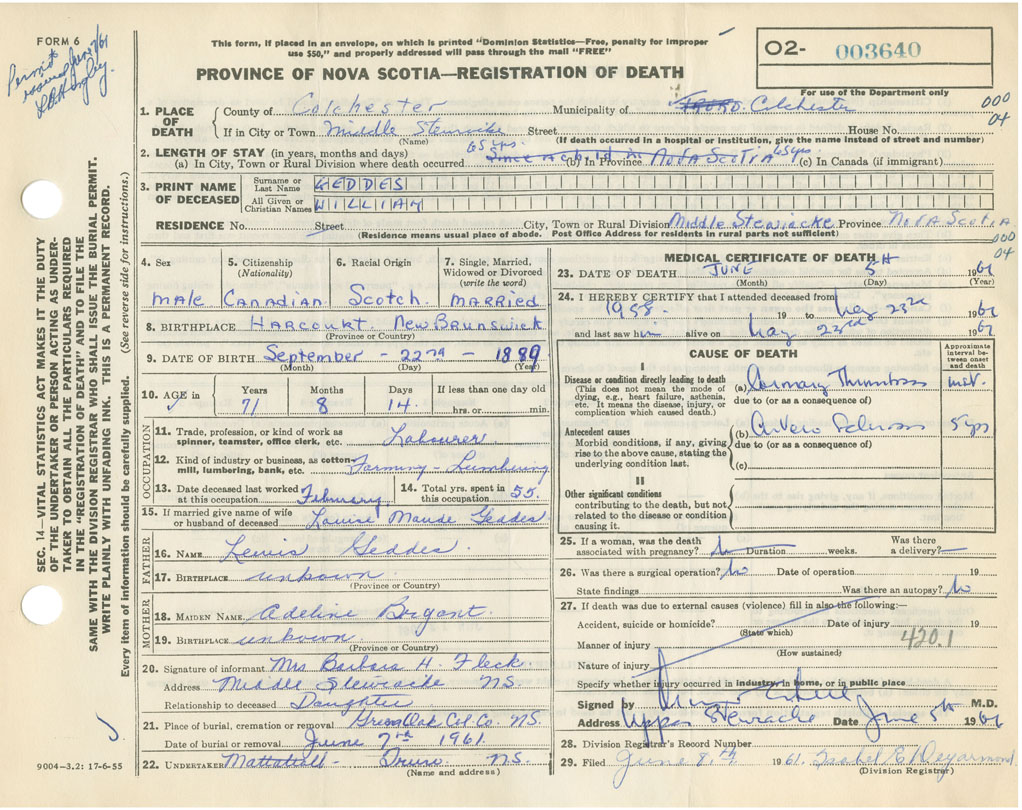 FORM 6
Permit
issued June 7/61
This form, if placed in an envelope, on which is printed "Dominion Statistics—Free, penalty for improper
use $50," and properly addressed will pass through the mail "FREE"
O2- 003640
PROVINCE OF NOVA SCOTIA—REGISTRATION OF DEATH
For use of the Department only
000
04
1. PLACE OF DEATH
County of Colchester Municipality of Truro. Colchester
If in City or Town Middle Stewiacke Street House No.
(Name) (If death occurred in a hospital or institution, give the name instead of street and number)
2. LENGTH OF STAY (in years, months and days) 65 yrs.
(a) In City, Town or Rural Division where death occurred (b) In Province Nova Scotia 65 yrs (c) In Canada (if immigrant)
3. PRINT NAME OF DECEASED
Surname or Last Name GEDDES
All Given or Christian Names WILLIAM
RESIDENCE No. Street City, Town or Rural Division Middle Stewiacke Province Nova Scotia
(Residence means usual place of abode. Post Office Address for residents in rural parts not sufficient)
000
04
4. Sex
Male
5. Citizenship (Nationality)
Canadian
6. Racial Origin
Scotch
7. Single, Married, Widowed or Divorced (write the word)
Married
8. BIRTHPLACE Harcourt New Brunswick
(Province or Country)
9. DATE OF BIRTH September - 22nd - 1889
(Month) (Day) (Year)
10. AGE in
Years Months Days If less than one day old
71 8 14 hrs. or min.
OCCUPATION
11. Trade, profession, or kind of work as
spinner, teamster, office clerk, etc. Labourer
12. Kind of industry or business, as cotton-
mill, lumbering, bank, etc. Farming - Lumbering
13. Date deceased last worked
at this occupation February
14. Total yrs. spent in
this occupation 55.
15. If married give name of wife
or husband of deceased Louise Maude Geddes
FATHER
16. NAME Lewis Geddes
17. BIRTHPLACE unkown
(Province or Country)
MOTHER
18. MAIDEN NAME Adeline Brgant.
19. BIRTHPLACE unkown
(Province or Country)
20. Signature of informant Mrs Barbara H. Fleck.
Address Middle Stewiacke N.S.
Relationship to deceased Daughter
21. Place of burial, cremation or removal Green Oak Col. Co. N.S.
Date of burial or removal June 7th 1961.
22. UNDERTAKER Mattatall - Truro N.S.
(Name and address)
MEDICAL CERTIFICATE OF DEATH
23. DATE OF DEATH JUNE 5th 1961
(Month) (Day) (Year)
24. I HEREBY CERTIFY that I attended deceased from
1958. 19 to May 23rd 1961
and last saw him alive on May 23rd 1961
CAUSE OF DEATH
Approximate interval between onset and death
I
Disease or condition directly leading to death
(This does not mean the mode of
dying, e.g., heart failure, asthenia,
etc. It means the disease, injury, or
complication which caused death.)
(a) Coronary Thrombosis inst.
due to (or as a consequence of)
Antecedent causes
Morbid conditions, if any, giving
rise to the above cause, stating the
underlying condition last.
(b) Arterio Sclerosis 5 yrs
due to (or as a consequence of)
(c)
II
Other significant conditions
contributing to the death, but not
related to the disease or condition
causing it.
25. If a woman, was the death
associated with pregnancy? Duration weeks. Was there
a delivery?
26. Was there a surgical operation? No Date of operation 19
State findings Was there an autopsy? No
27. If death was due to external causes (violence) fill in also the following:—
Accident, suicide or homicide? Date of injury 19
(State which)
Manner of injury 420.1
(How sustained)
Nature of injury
Specify whether injury occurred in industry, in home, or in public place
Signed by M.D.
Address Upper Stewiacke Date June 5th 1961
28. Division Registrar's Record Number
29. Filed June 8th 1961. Isabel E. Deyarmond
(Division Registrar)
SEC. 14—VITAL STATISTICS ACT MAKES IT THE DUTY
OF THE UNDERTAKER OR PERSON ACTING AS UNDER-
TAKER TO OBTAIN ALL THE PARTICULARS REQUIRED
IN THE "REGISTRATION OF DEATH" AND TO FILE THE
SAME WITH THE DIVISION REGISTRAR WHO SHALL ISSUE THE BURIAL PERMIT.
WRITE PLAINLY WITH UNFADING INK. THIS IS A PERMANENT RECORD.
Every item of information should be carefully supplied. (See reverse side for instructions.)
9004-3.2: 17-6-55